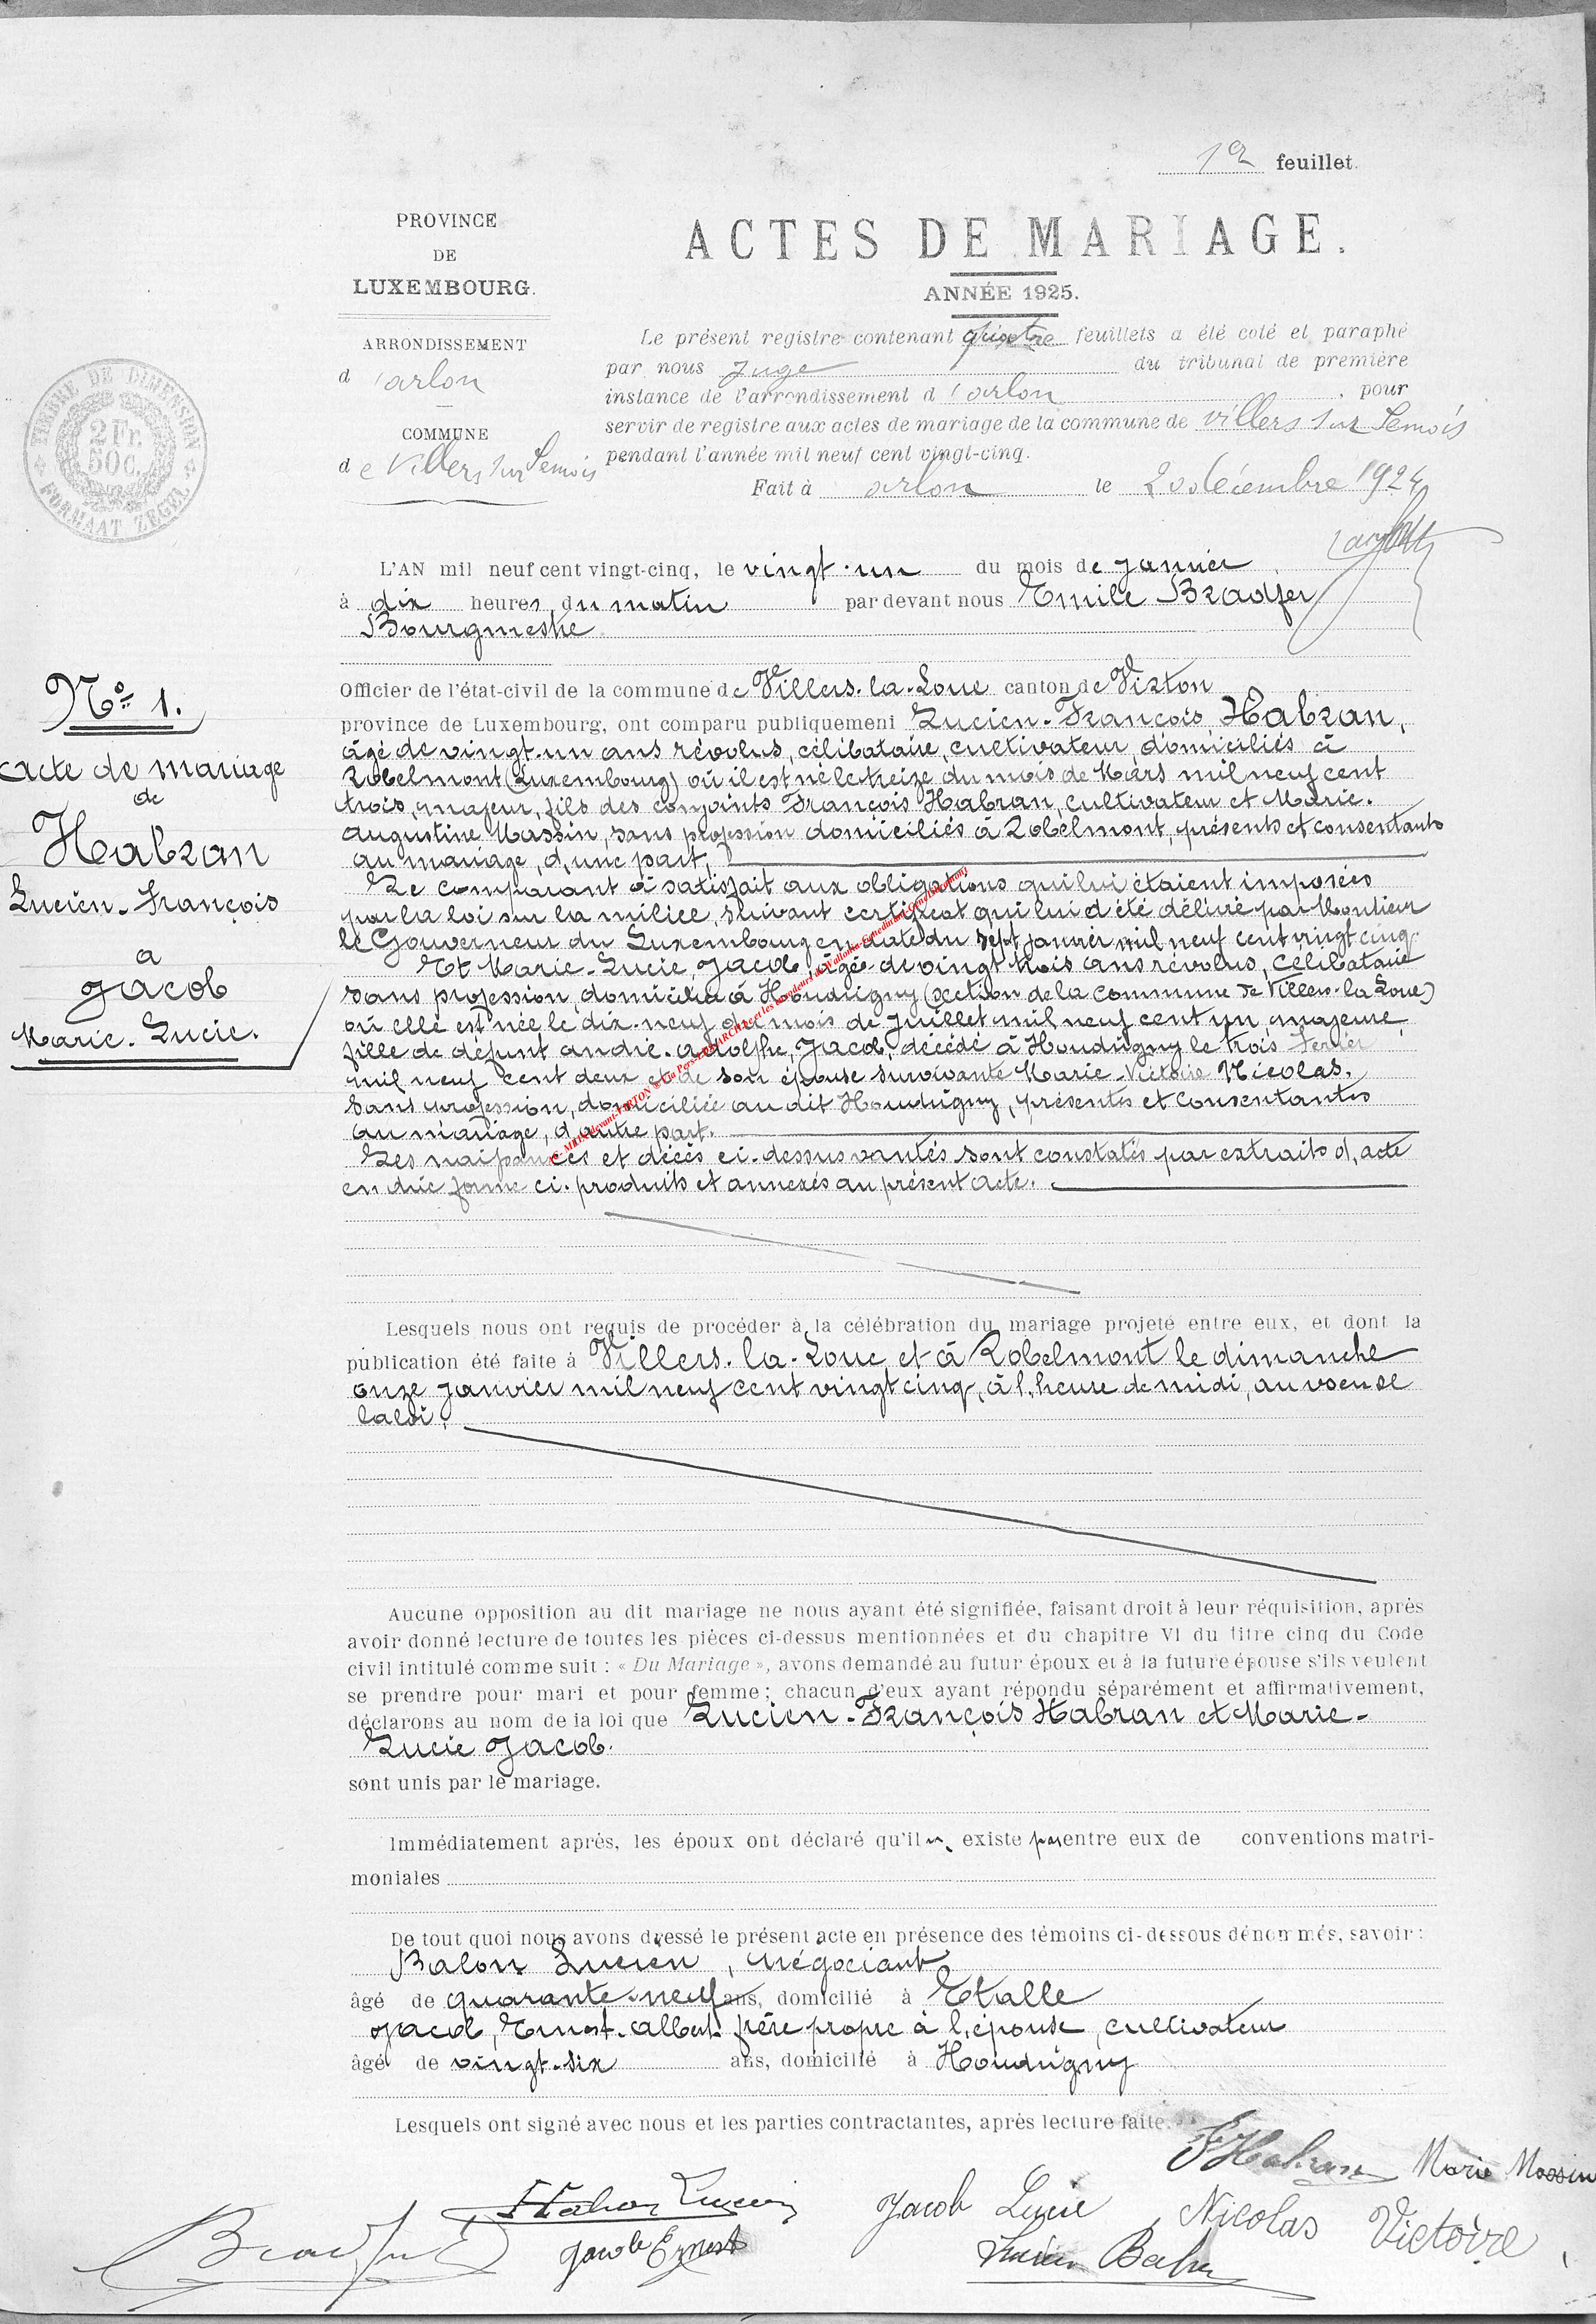 1er feuillet.
PROVINCE
DE
LUXEMBOURG.
ARRONDISSEMENT
d'arlon
COMMUNE
de Villers sur Semois
TIMBRE DE DIMENSION
2 Fr.
50 C.
FORMAAT ZEGEL
ACTES DE MARIAGE.
ANNÉE 1925.
Le présent registre contenant quatre feuillets a été coté et paraphé
par nous Juge du tribunal de première
instance de l'arrondissement d'arlon, pour
servir de registre aux actes de mariage de la commune de Villers sur Semois
pendant l'année mil neuf cent vingt-cinq.
Fait à arlon le 20 décembre 1924
L'AN mil neuf cent vingt-cinq, le vingt-un du mois de janvier,
à dix heures du matin par devant nous Emile Bradfer
Bourgmestre
Officier de l'état-civil de la commune de Villers-la-Loue canton de Virton
province de Luxembourg, ont comparu publiquement Lucien-François Habran,
âgé de vingt-un ans révolus, célibataire, cultivateur, domiciliés à
Robelmont (Luxembourg) où il est né le treize du mois de Mars mil neuf cent
trois, majeur, fils des conjoints François Habran, cultivateur et Marie-
Augustine Massin, sans profession domiciliés à Robelmont, présents et consentants
au mariage, d'une part,
Le comparant a satisfait aux obligations qui lui étaient imposées
par la loi sur la milice, suivant certificat qui lui a été délivré par Monsieur
le Gouverneur du Luxembourg en date du sept janvier mil neuf cent vingt cinq.
Et Marie-Lucie Jacob, âgée de vingt trois ans révolus, célibataire
sans profession, domiciliée à Houdrigny (section de la commune de Villers-la-Loue)
où elle est née le dix-neuf du mois de Juillet mil neuf cent un, majeure,
fille de défunt andré-adolphe, Jacob, décédé à Houdrigny le trois Fevrier
mil neuf cent deux et de son épouse survivante Marie-Victoire Nicolas,
sans profession, domiciliée au dit Houdrigny, présentes et consentantes
au mariage, d'autre part.
Les naissances et décès ci-dessus vantés sont constatés par extraits d'acte
en due forme ci-produits et annexés au présent acte.
No 1.
Acte de mariage
de
Habran
Lucien-François
a
Jacob
Marie-Lucie.
Lesquels nous ont requis de procéder à la célébration du mariage projeté entre eux, et dont la
publication été faite à Villers-la-Loue et à Robelmont le dimanche
onze janvier mil neuf cent vingt cinq, à l'heure de midi, au voeu de
la loi.
Aucune opposition au dit mariage ne nous ayant été signifiée, faisant droit à leur réquisition, après
avoir donné lecture de toutes les pièces ci-dessus mentionnées et du chapitre VI du titre cinq du Code
civil intitulé comme suit : « Du Mariage », avons demandé au futur époux et à la future épouse s'ils veulent
se prendre pour mari et pour femme ; chacun d'eux ayant répondu séparément et affirmativement,
déclarons au nom de la loi que Lucien-François Habran et Marie-
Lucie Jacob.
sont unis par le mariage.
Immédiatement après, les époux ont déclaré qu'il n'existe pas entre eux de conventions matri-
moniales
De tout quoi nous avons dressé le présent acte en présence des témoins ci-dessous dénommés, savoir :
Balon Lucien, négociant,
âgé de quarante-neuf ans, domicilié à Etalle
Jacob, Ernest-Albert frère propre à l'épouse, cultivateur
âgé de vingt-six ans, domicilié à Houdrigny
Lesquels ont signé avec nous et les parties contractantes, après lecture faite.
F Habran Marie Massin
Habran Lucien Jacob Lucie Nicolas Victoire
Bradfer E Jacob Ernest Lucien Balon